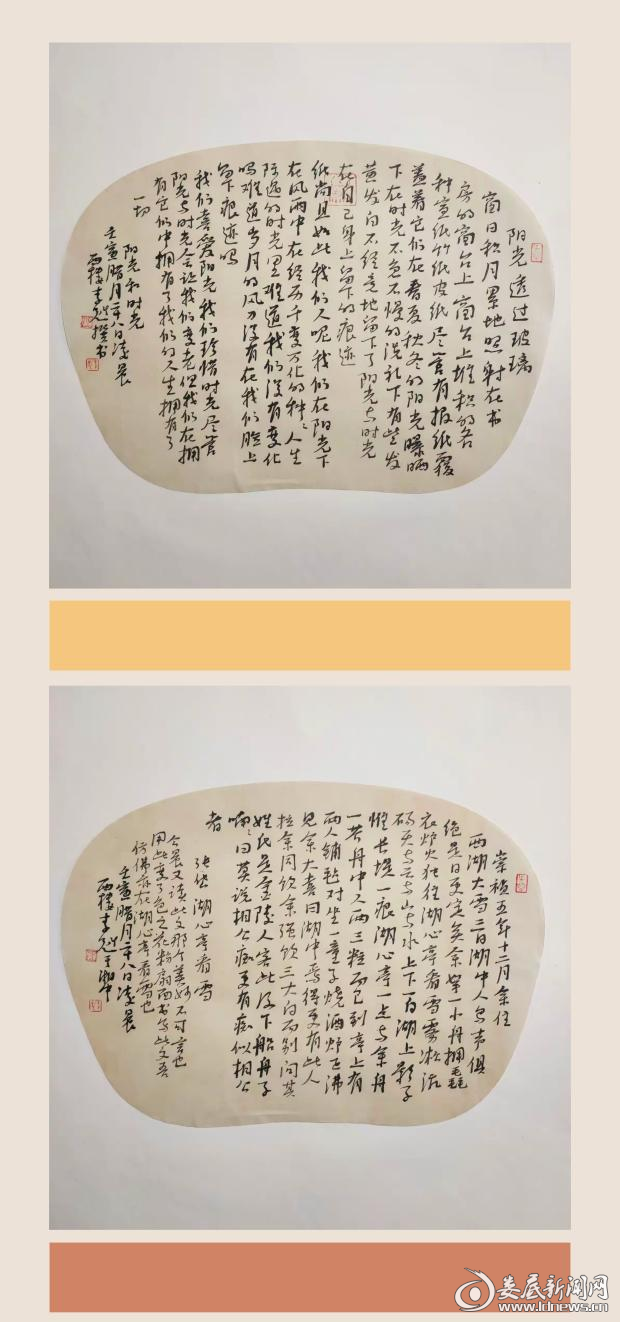 阳光透过玻璃
窗日积月累地照射在书
房的窗台上窗台上堆积的各
种宣纸竹纸皮纸尽管有报纸覆
盖着它们在春夏秋冬的阳光曝晒
下在时光不急不慢的洗礼下有些发
黄发白不经意地留下了阳光与时光
在自己身上留下的痕迹
纸尚且如此我们人呢我们在阳光下
在风雨中在经历千变万化的种种人生
际遇的时光里难道我们没有变化
吗难道岁月的风刀没有在我们脸上
留下痕迹吗
我们喜爱阳光我们珍惜时光尽管
阳光与时光会让我们变老但我们在拥
有它们中拥有了我们的人生拥有了
一切
阳光和时光
壬寅腊月二十八日凌晨
西楼李
撰书
崇祯五年十二月余住
西湖大雪三日湖中人鸟声俱
绝是日更定矣余拏一小舟拥毳
衣炉火独往湖心亭看雪雾凇沆
砀天与云与山与水上下一白湖上影子
惟长堤一痕湖心亭一点与余舟
一芥舟中人两三粒而已到亭上有
两人铺毡对坐一童子烧酒炉正沸
见余大喜曰湖中焉得更有此人
拉余同饮余强饮三大白而别问其
姓氏是金陵人客此及下船舟子
喃喃曰莫说相公痴更有痴似相公
者
张岱湖心亭看雪
今晨又读此文那个美妙不可言也
用此变了色之花粉扇面书写此文吾
仿佛亦在湖心亭看雪也
壬寅腊月二十八日凌晨
西楼李
于湘中
娄底新闻网
www.ldnews.cn